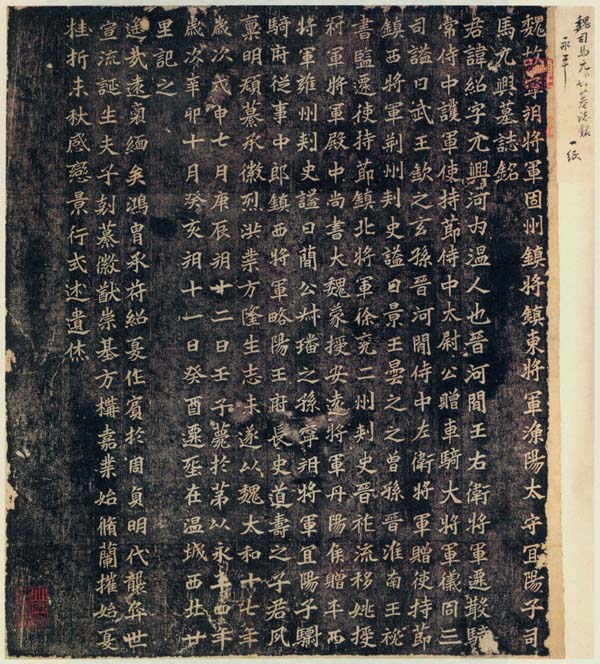 魏司馬元興墓誌銘 一紙
永平
魏故寧朔將軍固州鎮將鎮東將軍漁陽太守宜陽子司
馬元興墓誌銘
君諱紹字元興河內溫人也晉河間王右衛將軍遷散騎
常侍中護軍使持節侍中太尉公贈車騎大將軍儀同三
司謚曰武王欽之玄孫晉河間侍中左衛將軍贈使持節
鎮西將軍荊州刺史謚曰景王曇之之曾孫晉淮南王祕
書監遷使持節鎮北將軍徐兗二州刺史晉祚流移姚授
冠軍將軍殿中尚書大魏蒙授安遠將軍丹陽侯贈平西
將軍雍州刺史謚曰簡公叔璠之孫寧朔將軍宜陽子驃
騎府從事中郎鎮西將軍略陽王府長史道壽之子君夙
稟明頎纂承徽烈洪業方隆生志未遂以魏太和十七年
歲次戊申七月庚辰朔廿二日壬子薨於第以永平四年
歲次辛卯十月癸亥朔十一日癸酉遷塟在溫城西北廿
里記之
遙哉遠氣緬矣鴻冑承苻紹夏作賓於周貞明代襲弈世
宣流誕生夫子剋纂徽猷崇基方構嘉業始脩蘭摧始夏
桂折未秋感戀景行式述遺休